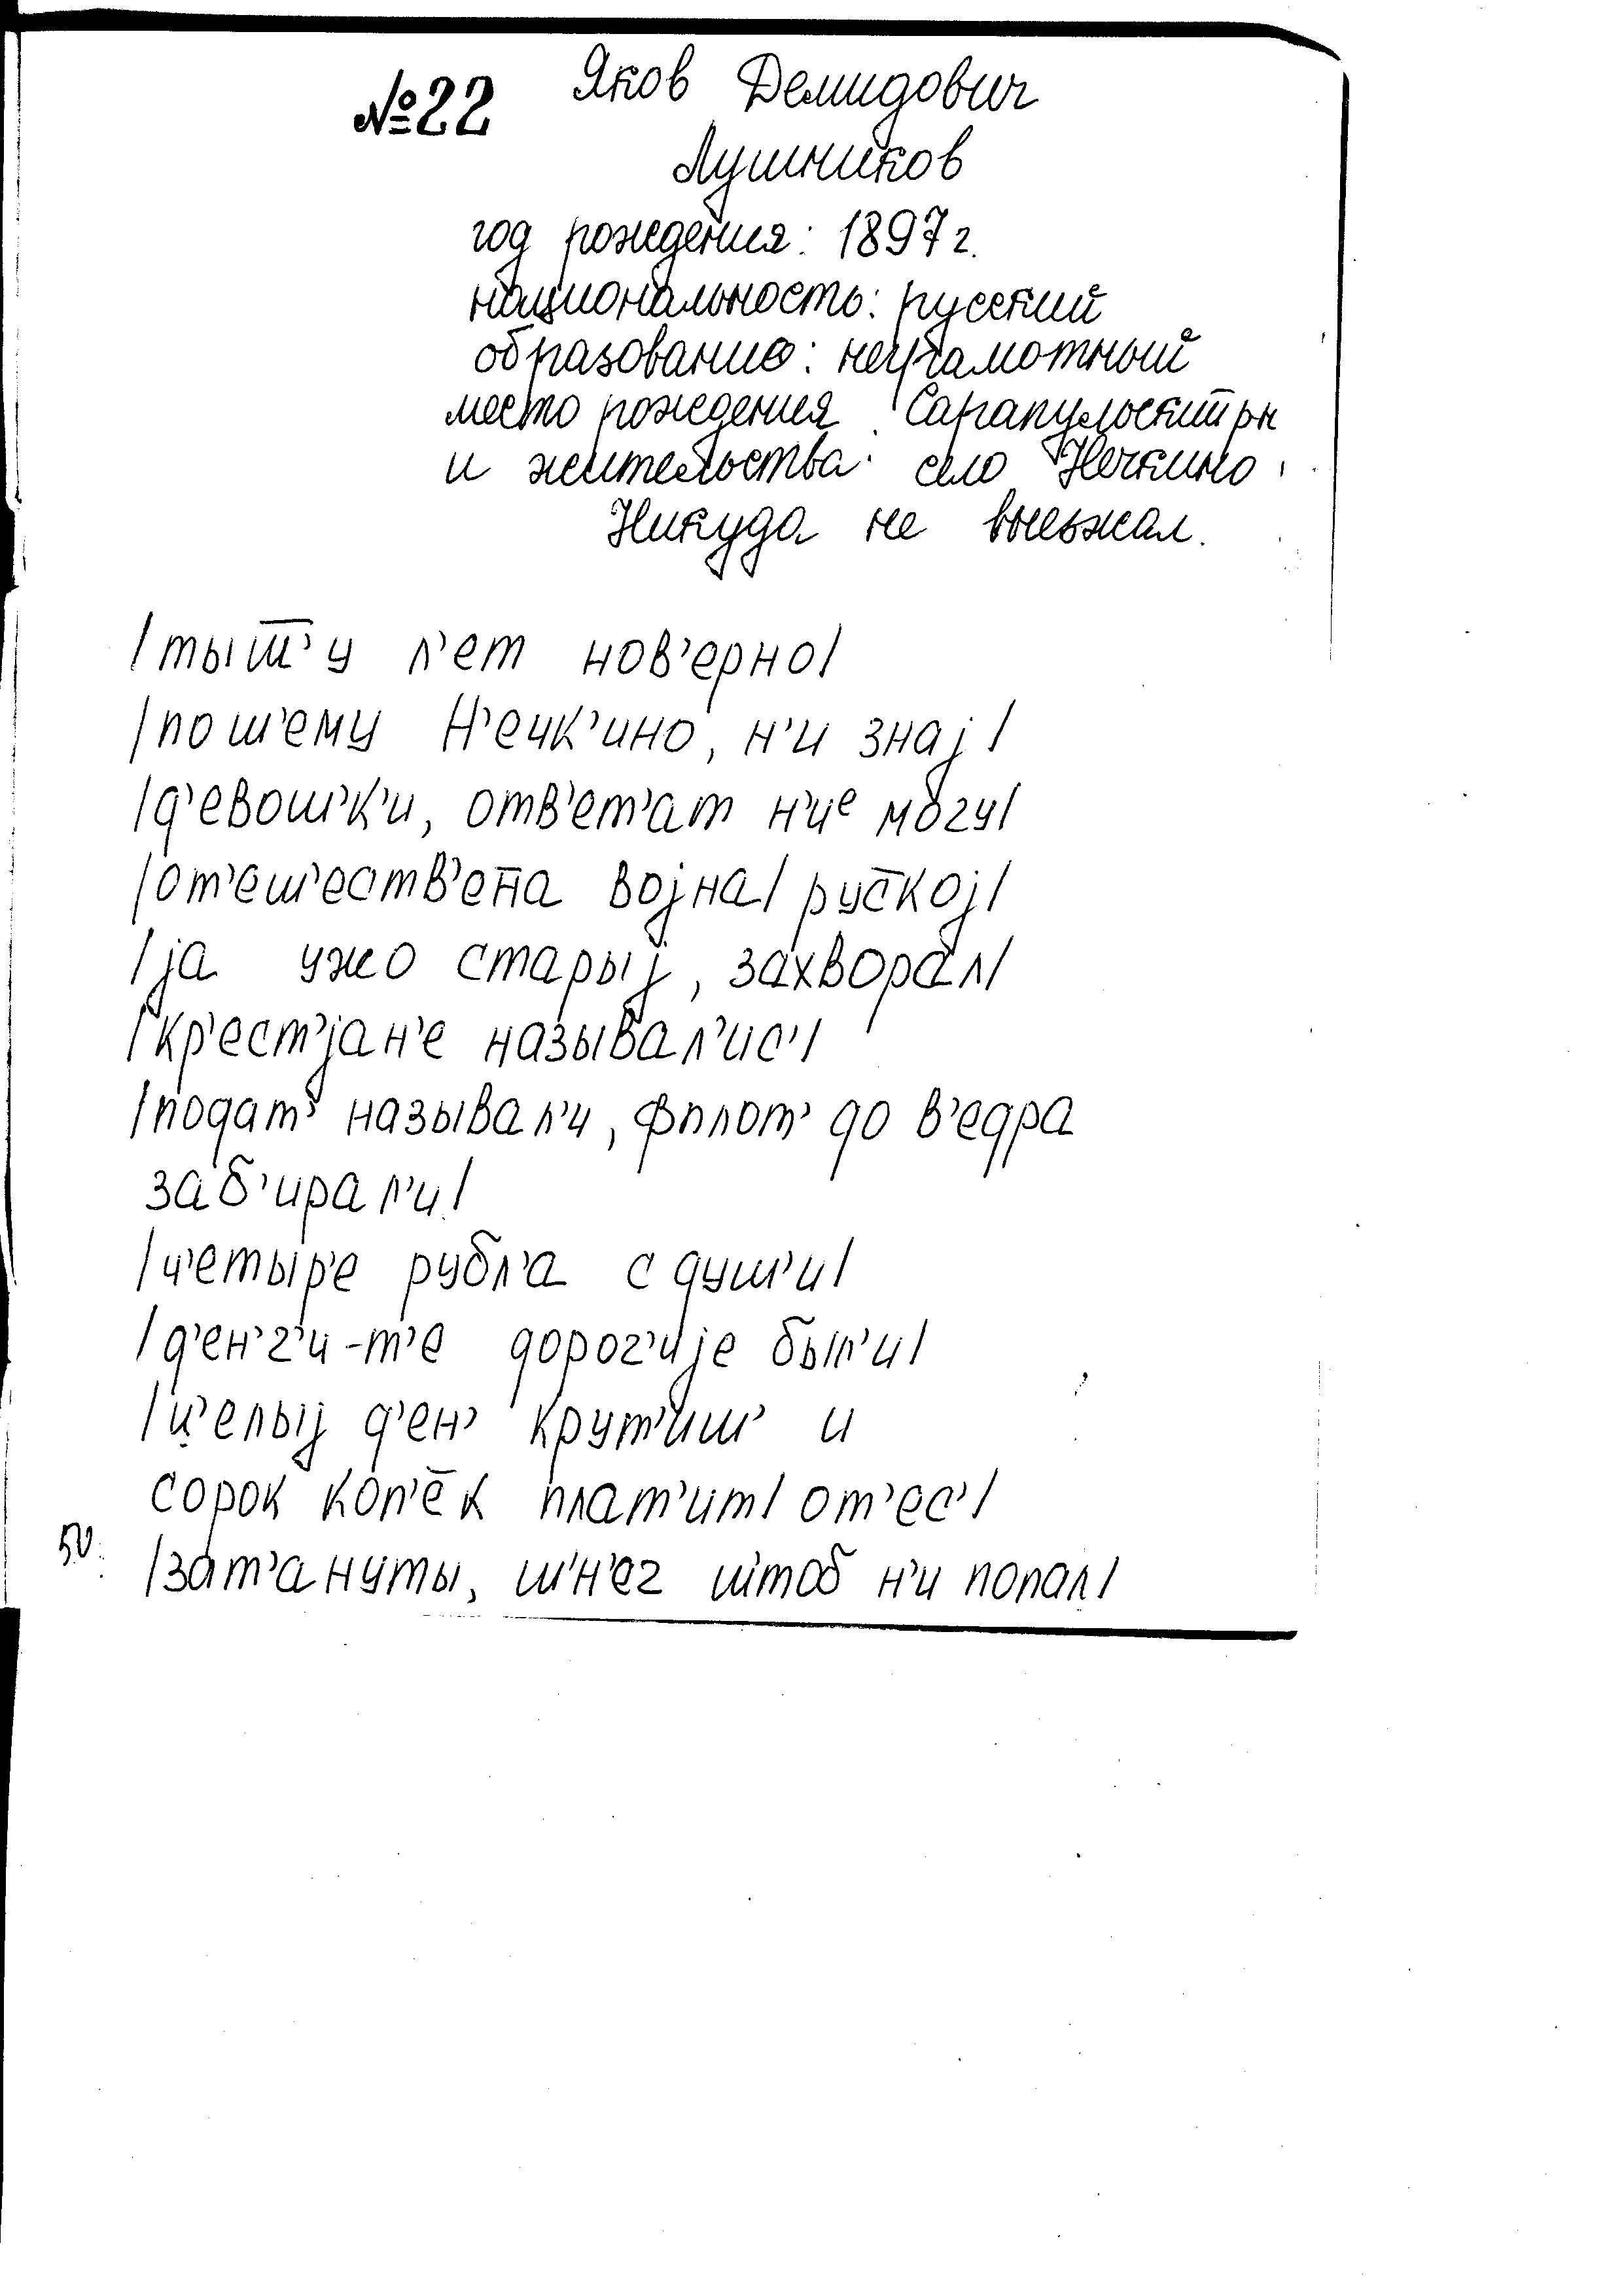 №22 Яков Демидович
Лушников
год рождения: 1897 г.
национальность: русский
образование: неграмотный
место рождения Сарапульский рн
и жительства: село Нечкино
Никуда не выезжал.
/тыш̅’у л’ет нов’ерно/
/пош’ему Н’ечк’ино, н’и знај/
/д’евош’к’и, отв’ет’ат н’иᵉ могу/
/от’еш’еств’ен̅а војна/ рус̅кој/
/ја ужо старыј, захворал/
/кр’ест’јан’е называл’ис’/
/подат’ называл’и, фплот’ до в’едра
заб’ирал’и/
/ч’етыр’е рубл’а с душ’и/
/д’ен’г’и-т’е дорог’ије был’и/
/ц’елыј д’ен’ крут’иш’ и
сорок коп’е̅к плат’ит/ от’ес’/
50.
/зат’ануты, ш’н’ег ш’тоб н’и попал/